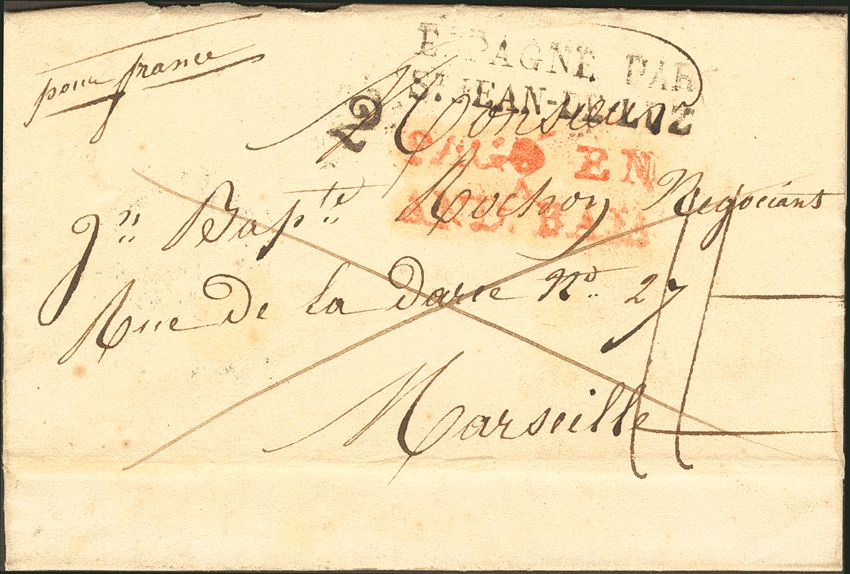 pour france
ESPAGNE PAR
ST JEAN-DE-LUZ
2
Monsieur
PAGO EN
AND. BAXA
Jn Bapte Rochon Negociant
Rue De La darce No. 27
Marseille